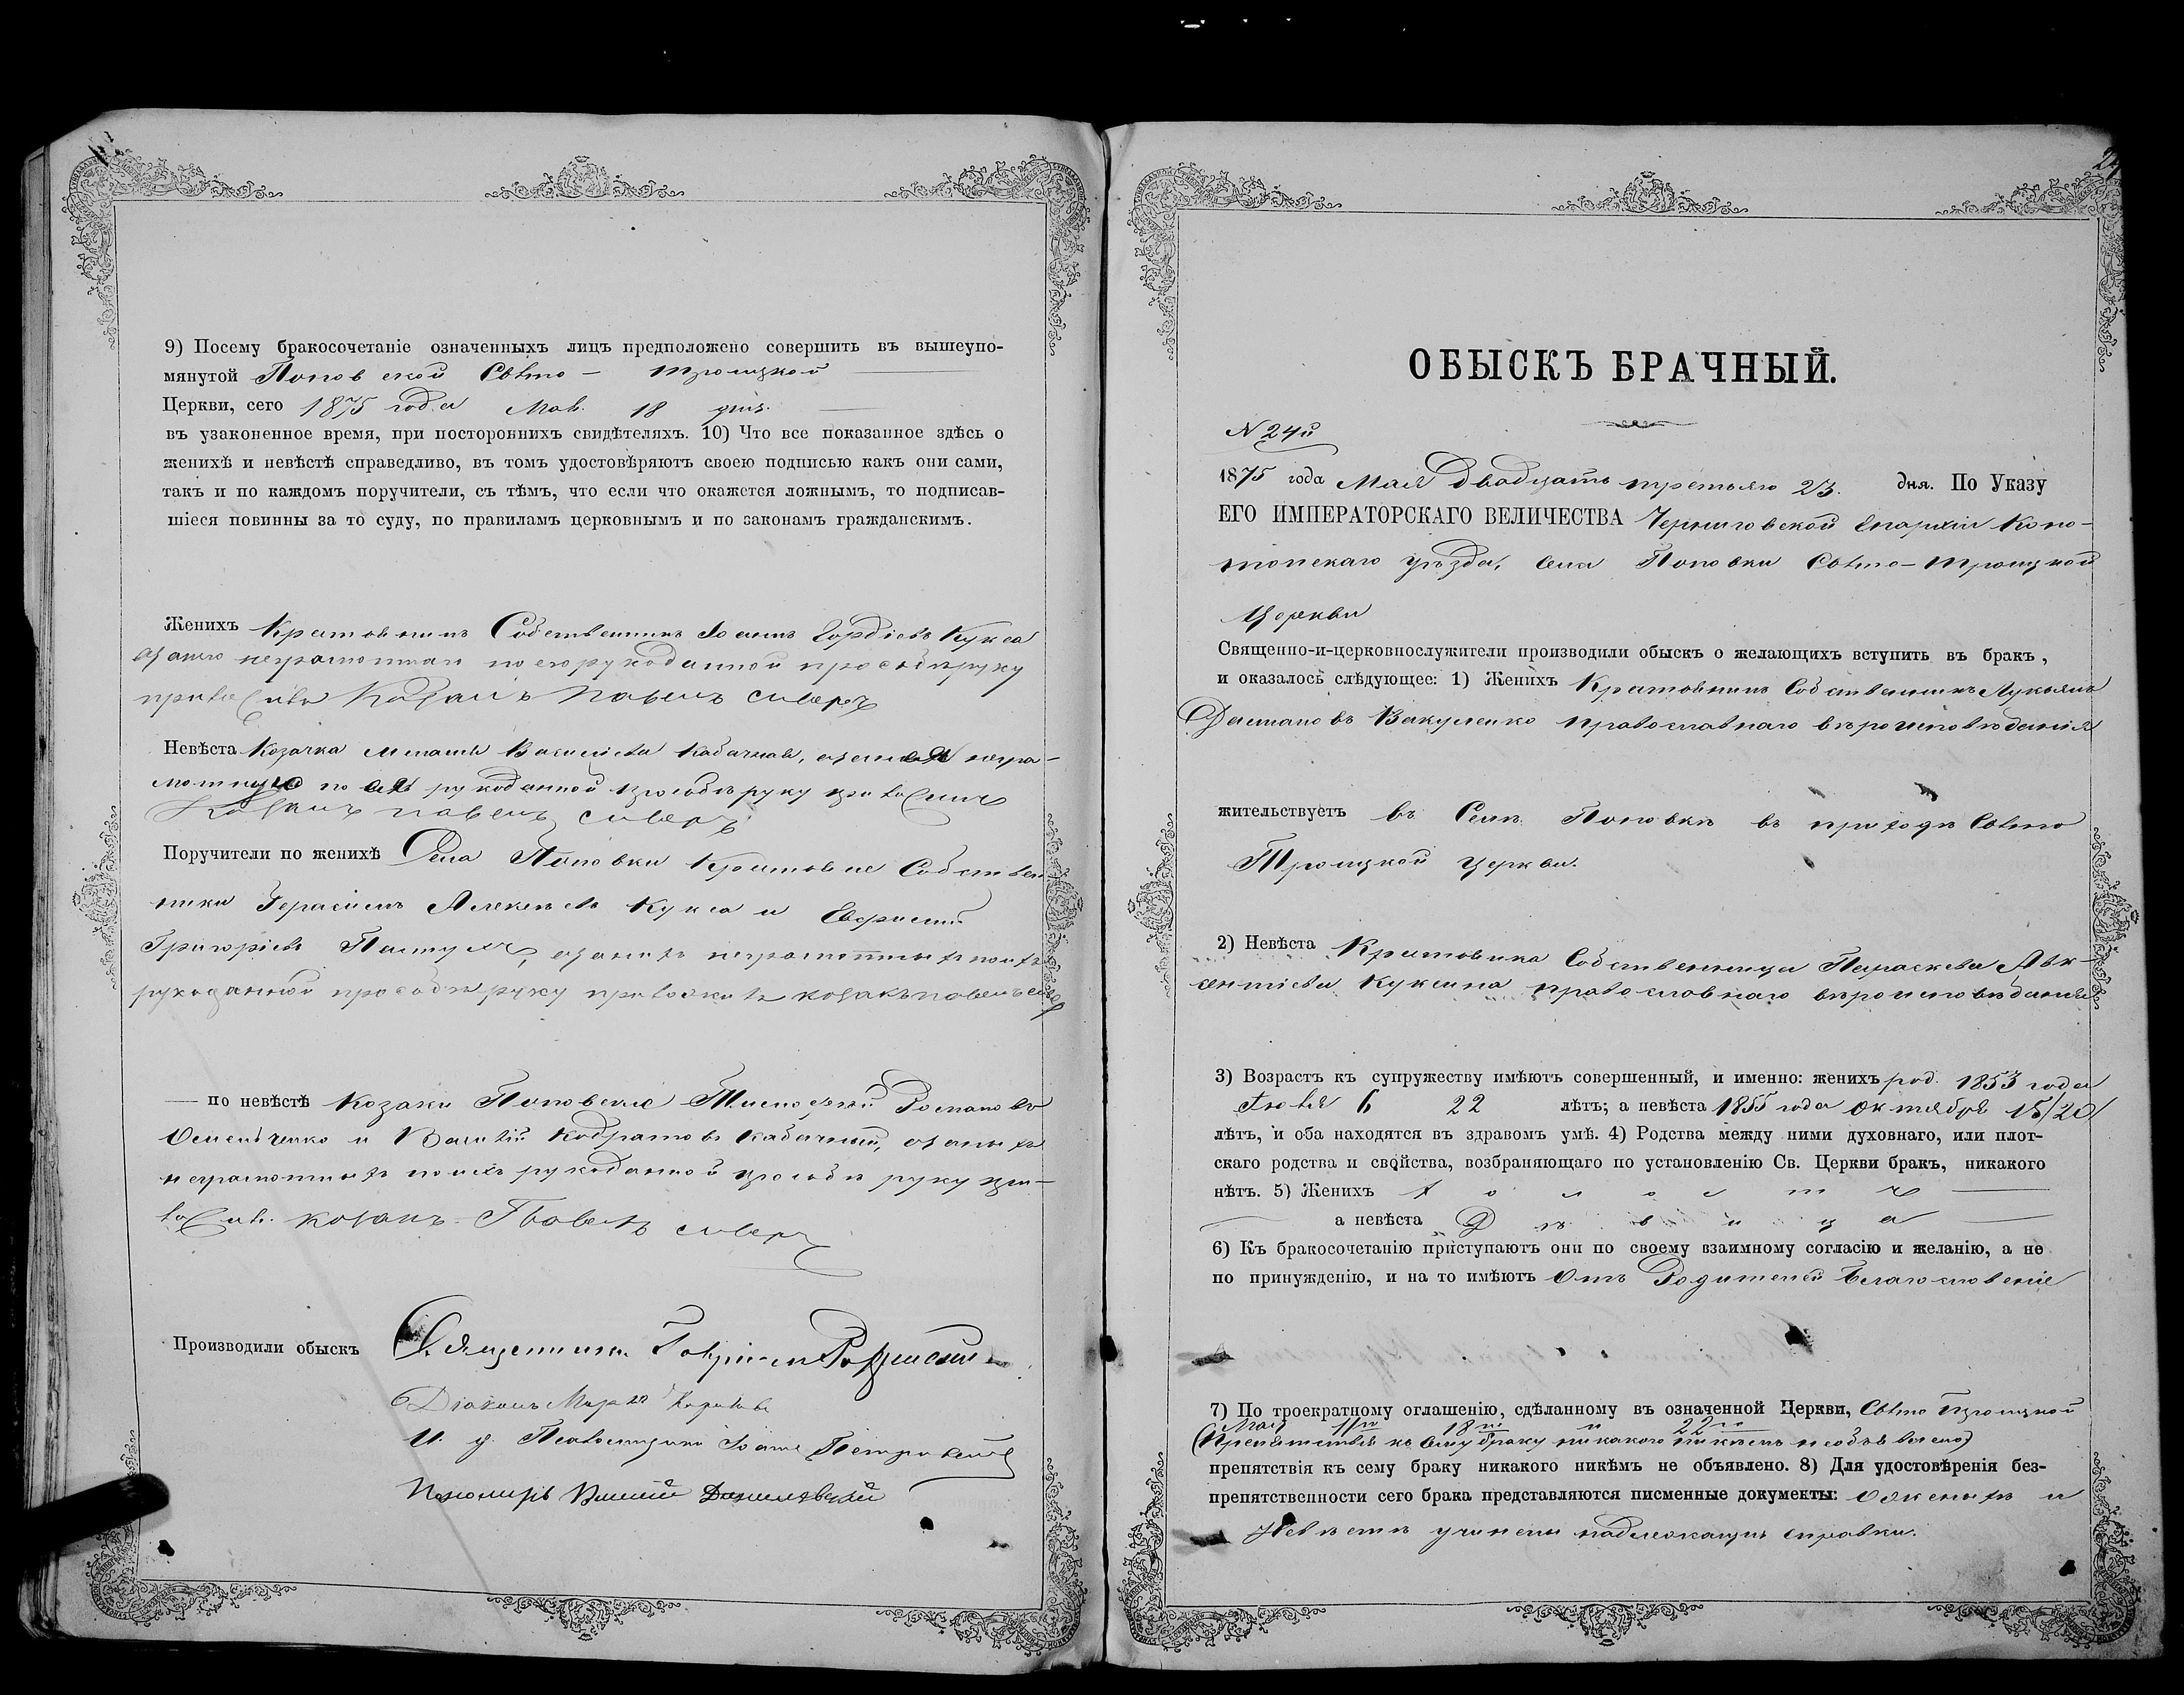 9) Посему бракосочетаніе означенныхъ лицъ предположено совершить въ вышеупо-
мянутой Поповской Свято- Троицкой
Церкви, сего 1875 года Мая 18 дня.
въ узаконенное время, при постороннихъ свидѣтеляхъ. 10) Что все показанное здѣсь о
женихѣ и невѣстѣ справедливо, въ томъ удостовѣряютъ своею подписью какъ они сами,
такъ и по каждомъ поручители, съ тѣмъ, что если что окажется ложнымъ, то подписав-
шіеся повинны за то суду, по правиламъ церковнымъ и по законамъ гражданскимъ.
Женихъ Крестьянинъ Собственникъ Іоаннъ Гордіевъ Кукса
а за него неграмотнаго по его рукоданной прозьбѣ руку
Козакъ Павелъ
Невѣста Козачка Васильева Кабачная, а за нея негра-
мотную по ея рукоданной прозьбѣ руку
Козакъ Павелъ
Поручители по женихѣ Села Поповки Крестьяне Собствен-
ники Герасимъ Алексѣевъ Кукса и
Григоріевъ Пастухъ, а за нихъ неграмотныхъ по ихъ
рукоданной прозьбѣ руку приложилъ козакъ Павелъ
— по невѣстѣ Козаки Поповскіе Тимофей Романовъ
и Василій Кодратовъ Кабачный, а за нихъ
неграмотныхъ по ихъ рукоданной прозьбѣ руку при-
козакъ Павелъ
Производили обыскъ Священникъ Гавріилъ
Діаконъ Марко
И. д. Псаломщика Іоаннъ Петровскій
Пономарь Василій Данилевскій
ОБЫСКЪ БРАЧНЫЙ.
N 24й
1875 года Мая Двадцать третьяго 23. дня. По Указу
ЕГО ИМПЕРАТОРСКАГО ВЕЛИЧЕСТВА Черниговской Епархіи Коно-
топскаго уѣзда, села Поповки Свято-Троицкой
Церкви
Священно-и-церковнослужители производили обыскъ о желающихъ вступить въ бракъ,
и оказалось слѣдующее: 1) Женихъ Крестьянинъ Собственникъ Лукьянъ
Вакуленко православнаго вѣроисповѣданія
жительствуетъ въ Селѣ Поповкѣ въ приходѣ Свято
Троицкой церкви.
2) Невѣста Крестьянка Собственница Параскева Авк-
сентіева Куксина православнаго вѣроисповѣданія
3) Возрастъ къ супружеству имѣютъ совершенный, и именно: женихъ род. 1853 года
6 22 лѣтъ; а невѣста 1855 года октября 15/20/
лѣтъ, и оба находятся въ здравомъ умѣ. 4) Родства между ними духовнаго, или плот-
скаго родства и свойства, возбраняющаго по установленію Св. Церкви бракъ, никакого
нѣтъ. 5) Женихъ холостъ
а невѣста Дѣвица
6) Къ бракосочетанію приступаютъ они по своему взаимному согласію и желанію, а не
по принужденію, и на то имѣютъ Отъ Родителей Благословеніе
7) По троекратному оглашенію, сдѣланному въ означенной Церкви, Свято Троицкой
Мая 11го 18го и 22го
(Препятствія къ сему браку никакого никѣмъ необъявлено)
препятствія къ сему браку никакого никѣмъ не объявлено. 8) Для удостовѣренія без-
препятственности сего брака представляются писменные документы: О женихѣ и
Невѣстѣ учинены надлежащія справки.